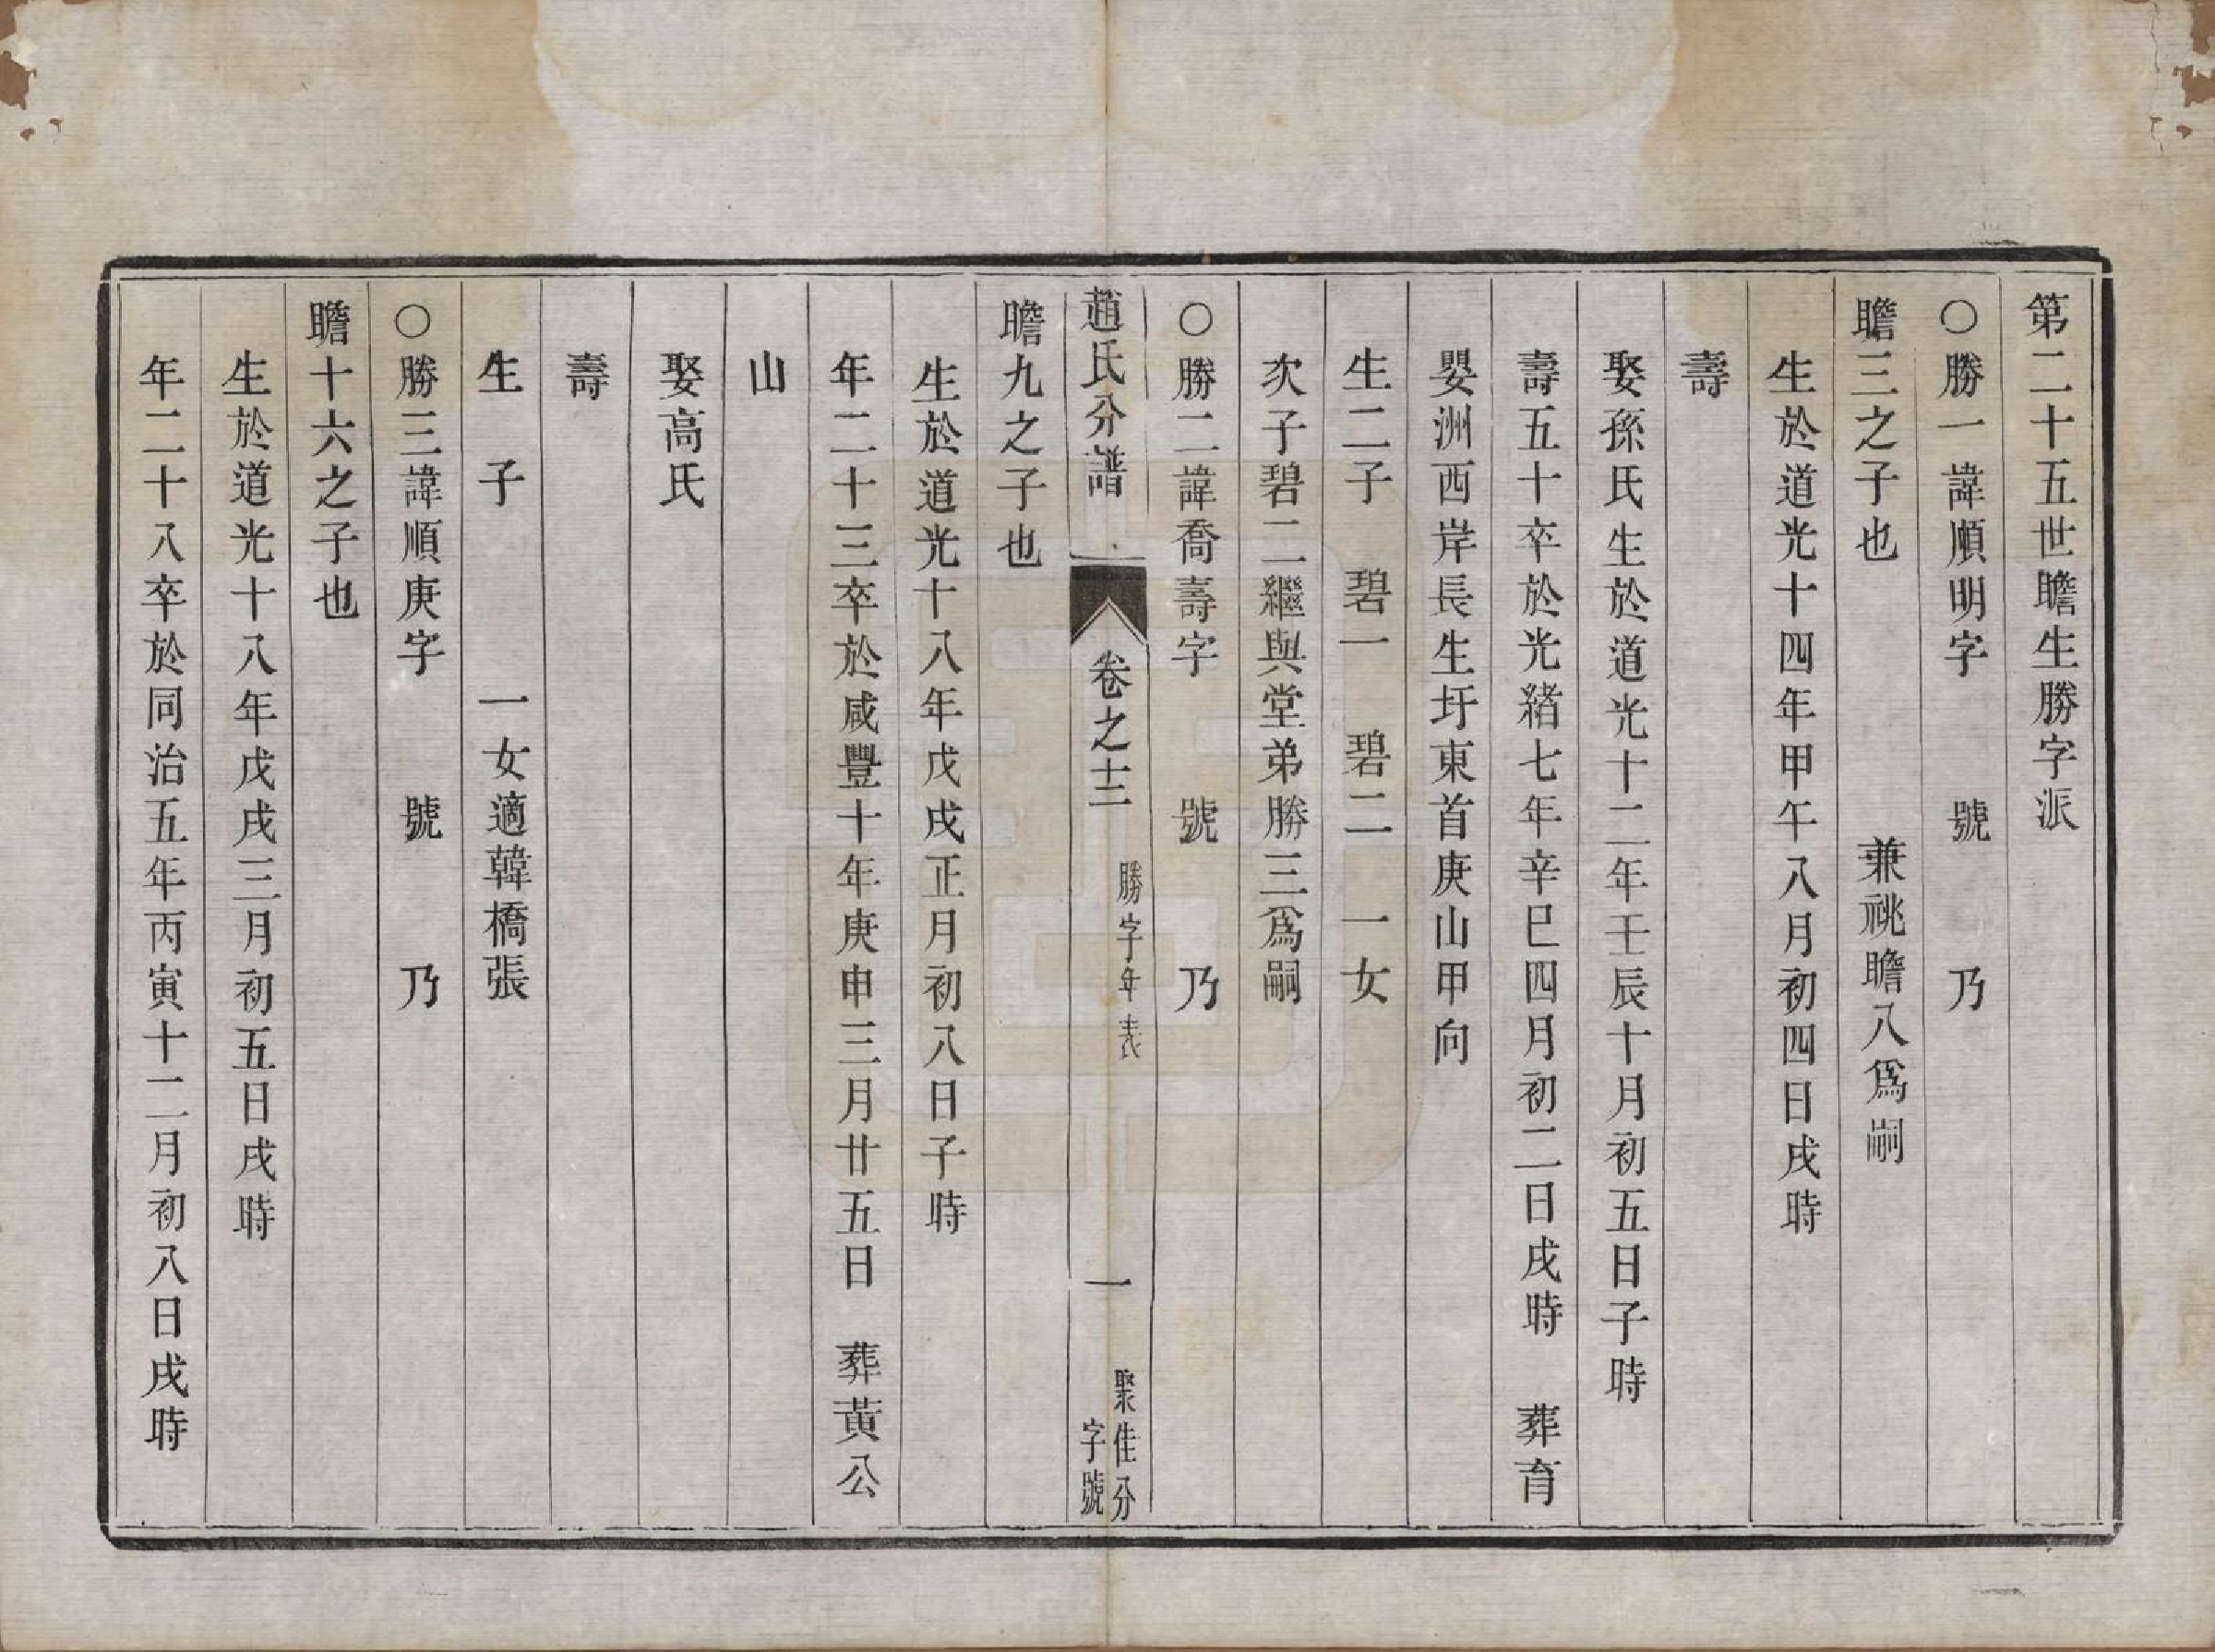 第二十五世瞻生勝字派
○勝一諱順明字　號　乃
瞻三之子也　兼祧瞻八爲嗣
生於道光十四年甲午八月初四日戌時
壽
娶孫氏生於道光十二年壬辰十月初五日子時
壽五十卒於光緒七年辛巳四月初二日戌時　葬育
嬰洲西岸長生圩東首庚山甲向
生二子　碧一　碧二　一女
次子碧二繼與堂弟勝三爲嗣
○勝二諱喬壽字　號　乃
趙氏分譜　卷之十二　勝字年表　一　聚佳分字號
瞻九之子也
生於道光十八年戊戌正月初八日子時
年二十三卒於咸豐十年庚申三月廿五日　葬黃公
山
娶高氏
壽
生　子　一女適韓橋張
○勝三諱順庚字　號　乃
瞻十六之子也
生於道光十八年戊戌三月初五日戌時
年二十八卒於同治五年丙寅十二月初八日戌時